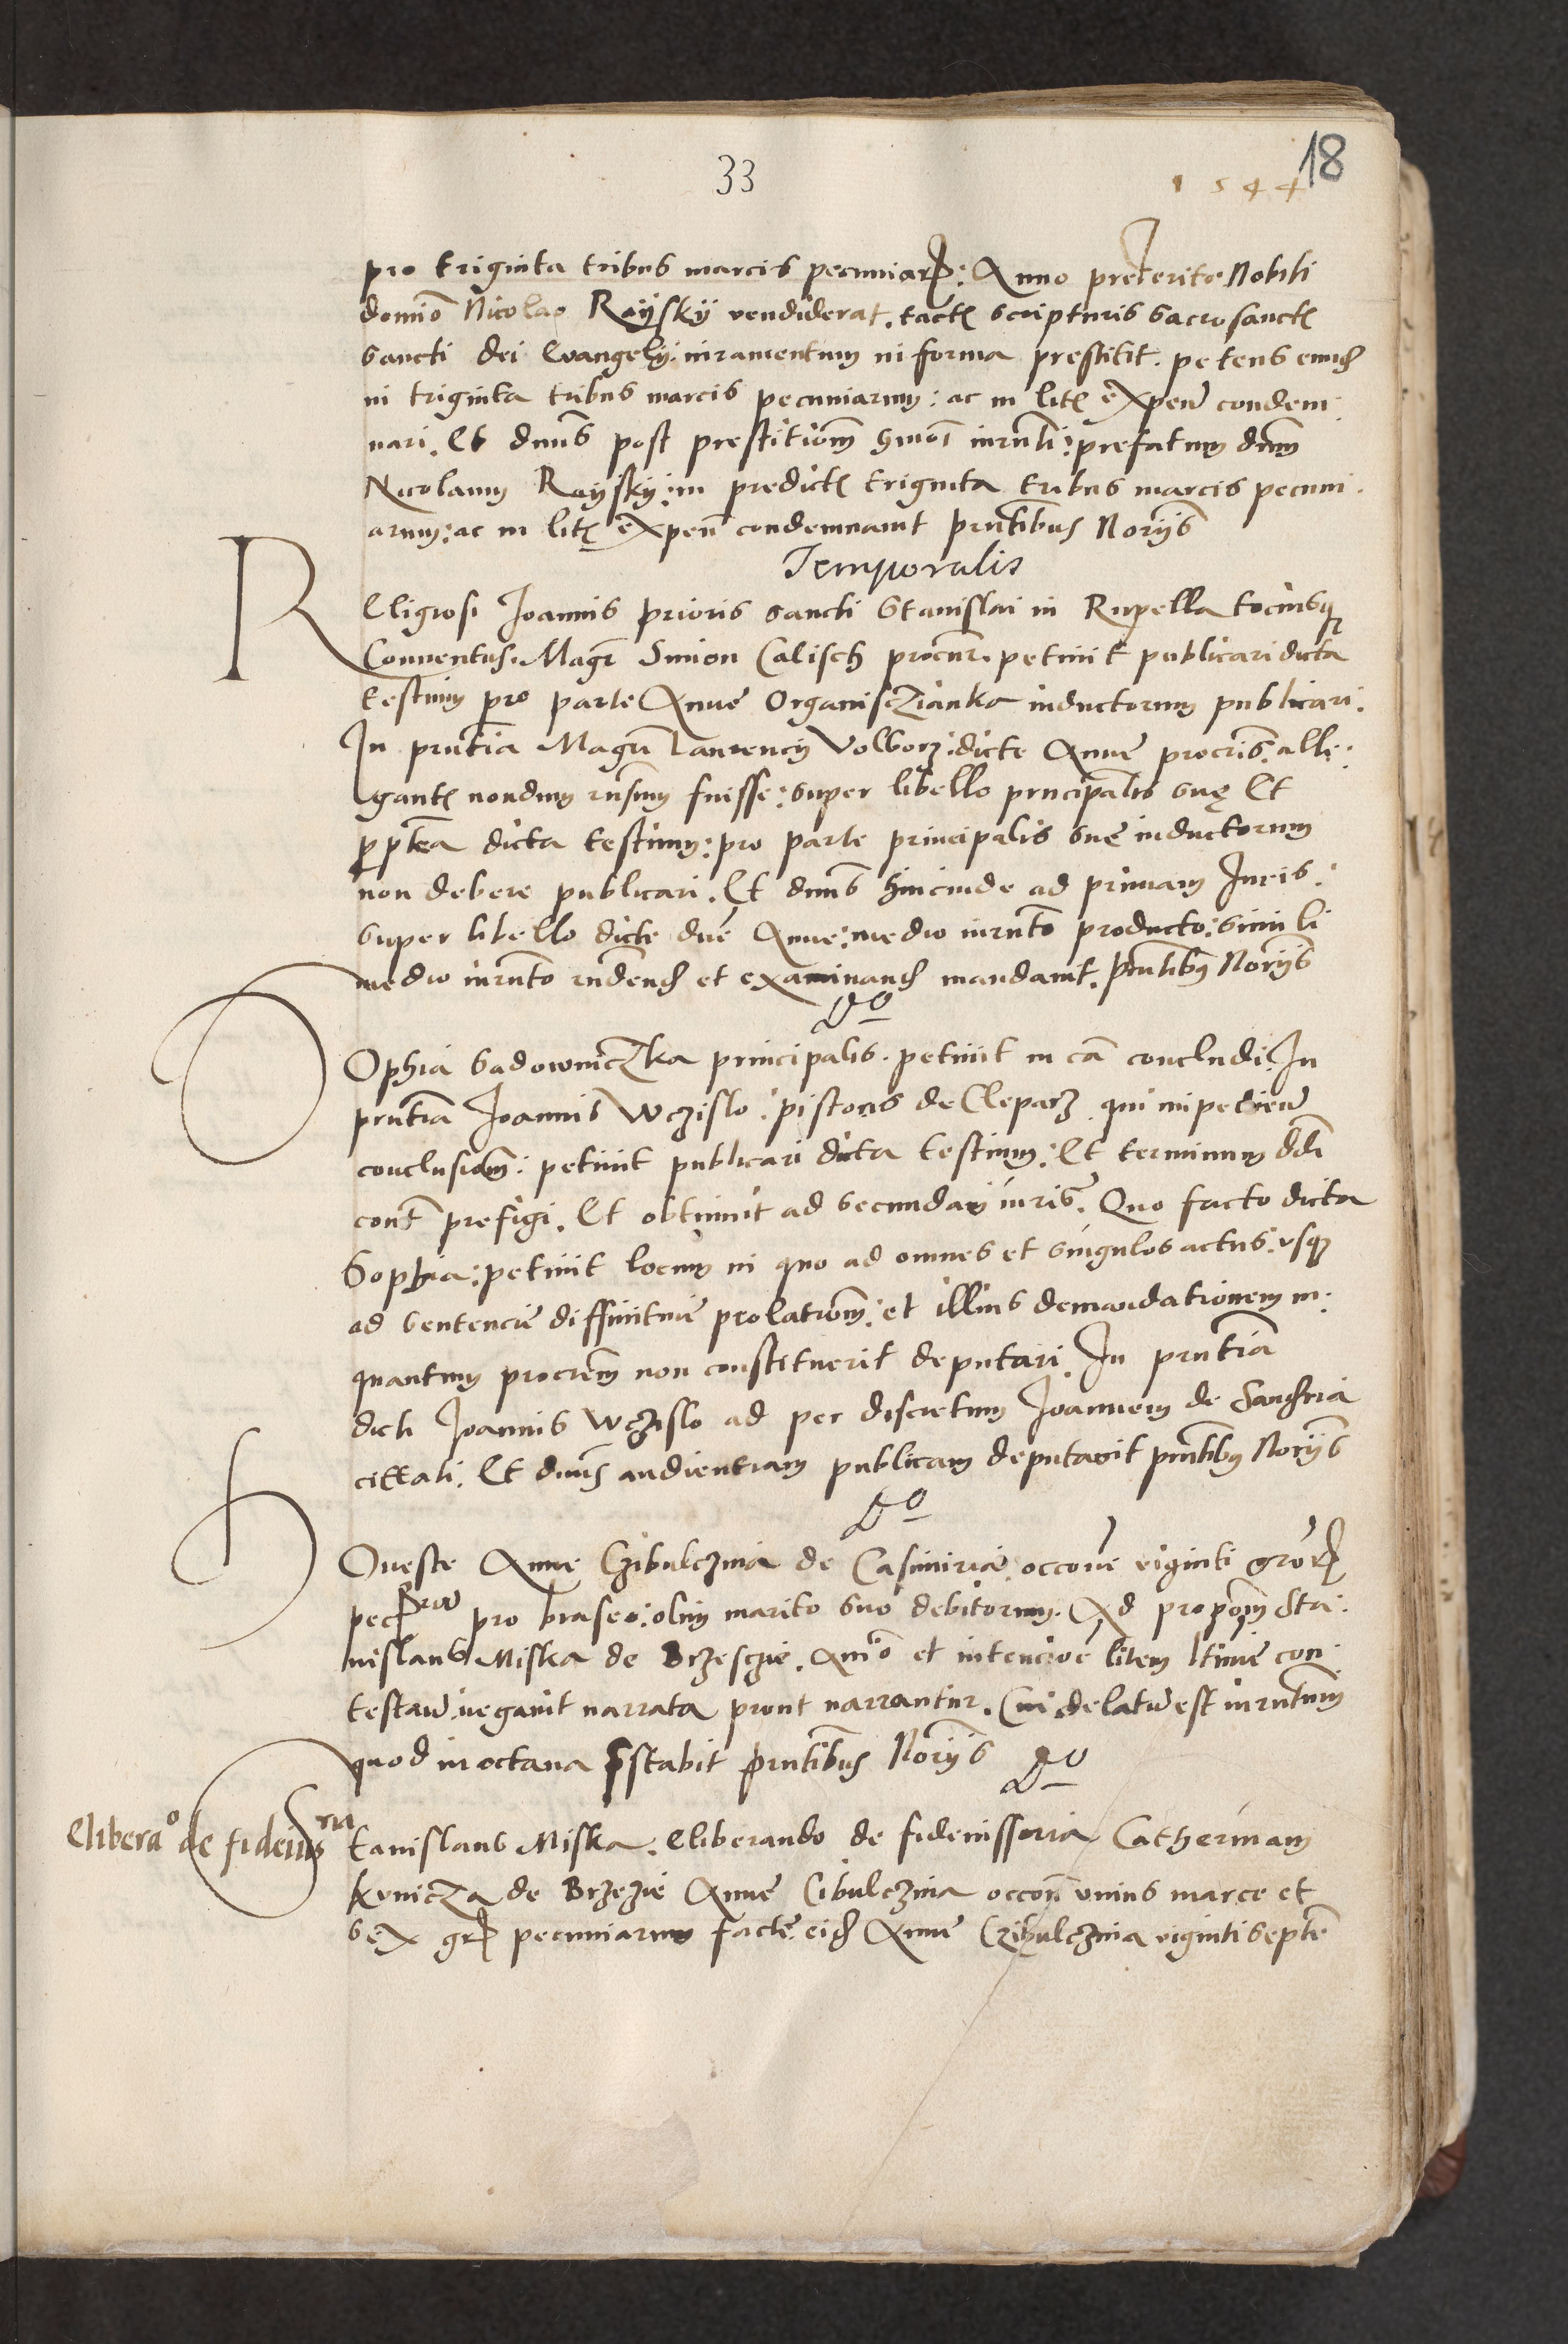 33
18
1544
pro triginta tribus marcis pecuniarꝝ: Anno preterito Nobili
domiō Nicolao Rayskÿ vendiderat. tactꝭ scripturis sacrosanctꝭ
sancti dei Evangelÿ: iuramentum in forma prestitit. petens eundē
in triginta tribus marcis pecuniarum: ac in litꝭ expeñ condem
nari. Et dnūs post prestitioēm hmōi iurnti: prefatum dnūm
Nicolaum Rayskÿ: in predictꝭ triginta tribus marcis pecuni
arum: ac in litꝭ expeñ condemnavit pñtibus Norÿs
Temporalis
REligiosi Joannis prioris sancti Stanislai in Rupella tociusqꝫ
Conventus. Magr̄ Simon Calisch procur̄. petiuit publicari dicta
testium pro parte Anne Organisczianka inductorum publicari.
In pñtia Magrī Laurencÿ Volborz: dicte Anne procrīs. alle
gantꝭ nondum rn̄sum fuisse: super libello principalis suę Et
ꝓpterea dicta testium: pro parte principalis sue inductorum
non debere publicari. Et dnūs hincinde ad primam Juris:
super libello dicte dnē Anne: medio iurnto producto: simili
medio iurnto rn̄dend et examinand mandauit. pñtibus Norÿs
Do
SOphia Sadowniczka principalis. petiuit in cā concludi. In
pñtia Joannis Wczislo: pistoris de Cleparz qui impediend
conclusiōm: petiuit publicari dicta testium: Et terminum ddi
cont̄ prefigi. Et obtinuit ad secundam iuris. Quo facto dicta
Sophia: petiuit locum in quo ad omnes et singulos actus: vsqꝫ
ad sentencie diffinitiue prolatiōm: et illius demandationem in
quantum procrēm non constituerit deputari. In pñtia
dicti Joannis Wczislo ad per discretum Joannem de
cittati. Et dnūs audientiam publicam deputavit pñtibus Norÿs
Do
HOneste Anne Czibulcznia de Casimiria: occōne viginti gror̄ꝝ
pec pro braseo: olim marito suo debitorum. Ad propōm Sta
nislaus Miska de Brzesczie. Animō et intencioē litem ltīme con
testand. negauit narrata prout narrantur. Cui delatū est iurntum
quod in octaua pstabit pñtibus Norÿs
Do
Eliberaº de fideiusria
Stanislaus Miska. Eliberando de fideiussoria Catherinam
Kunicza de Brzezie Anne Cibulcznia occōn̄ vnius marce et
sex grꝭ pecuniarum facte: eid Anne Czibulcznia viginti septē